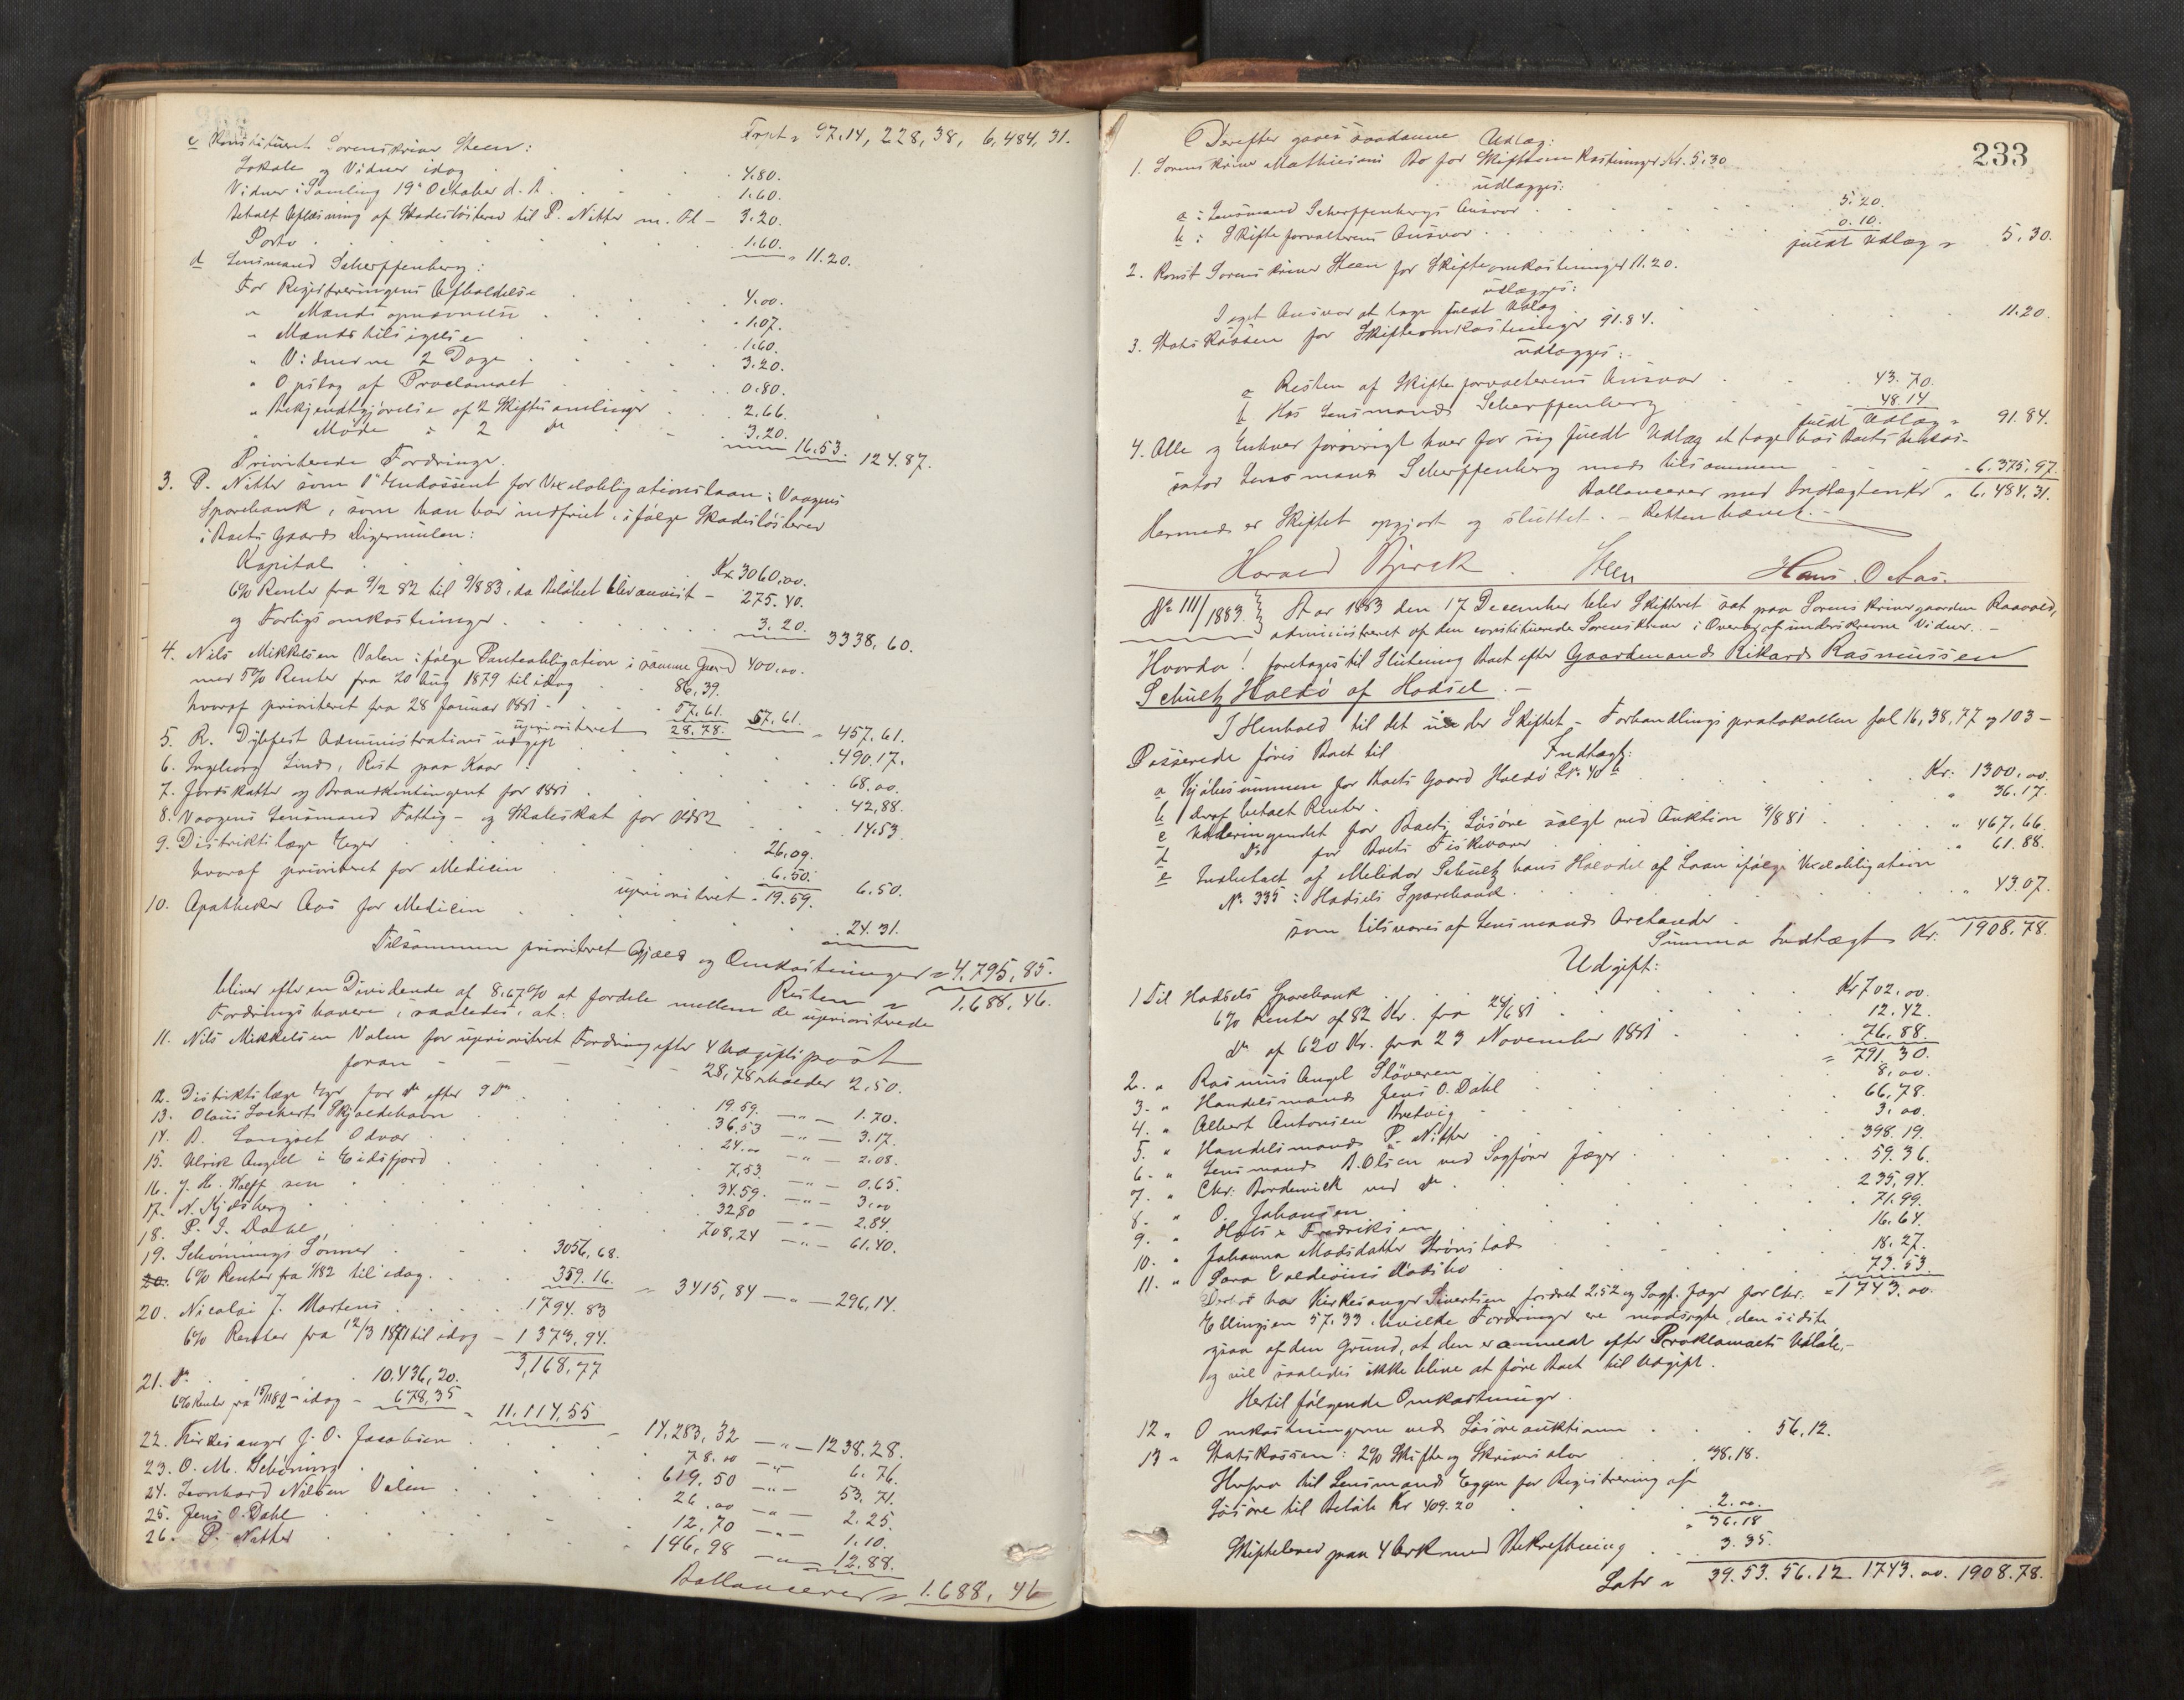 Trpt " 97.14, 228,38, 6,484,31.
c Konstitueret Sorenskriver Steen:
Lokale og Vidner idag 4.80.
Vidner i Samling 19de October d. A. 1.60.
betalt Aflæsning af Skadesløsbrev til P. Nitter m. Fl - 3.20.
Porto 1.60. " 11.20.
d Lensmand Scherffenberg:
For Registreringens Afholdelse 4.00.
" Mænds opnævnelse 1.07.
" Mænds tilsigelse 1.60.
" Vidnerne 2 Dage 3.20.
" Opslag af Proclamaet 0.80.
" Bekjendtgjørelse af 2 Skiftesamlinger 2.66.
" Møde i 2 do 3.20. 16.53. 124.87.
Prioriterede Fordringer.
3. P. Nitter som 1ste Endossent for Vexelobligationslaan i Vaagens
Sparebank, som han har indfriet, ifølge Skadesløsbrev
i Boets Gaard Digermulen:
Kapital Kr 3060,00.
6% Renter fra 9/2 82 til 9/8 83, da Beløbet blev anvist - 275.40.
og Forligsomkostninger 3.20. 3338,60.
4. Nils Mikkelsen Valen ifølge Panteobligation i samme Gaard 400.00.
med 5% Renter fra 20 Aug 1879 til idag 86,39.
hvoraf prioriteret fra 28 Januar 1881 - 57.61. 57.61. " 457.61.
uprioriteret 28.78.
5. R. Dybfest Administrations udgift 490.17.
6. Ingeborg Lind, Rest paa Kaar 68.00.
7. Jordskatter og Brandkontingent for 1881 42,88.
8. Vaagens Lensmand Fattig- og Skoleskat for 1882 14.53.
9. Distriktslæge Eger 26.09.
hvoraf prioriteret for Medicin 6.50. 6.50.
uprioriteret - 19.59.
10. Apotheker Aas for Medicin 24.31.
Tilsammen prioriteret Gjæld og Omkostninger " 4.795,85.
Resten " 1.688,46.
bliver efter en Dividende af 8.67% at fordele mellem de uprioriterede
Fordringshavere, saaledes, at:
11. Nils Mikkelsen Valen for uprioriteret Fordring efter 4 Udgiftspost
foran - 28,78 erholder 2.50.
12. Distriktslæge Eger for do efter 9 do 19.59. - " - 1.70.
13. Olaus Lockert Skjoldehavn 36.53 - " - 3.17.
14. B. Langset Odvær 24.00 - " - 2.08.
15. Ulrik Angell i Eidsfjord 7,53. - " - 0,65.
16. J. H. Wolff sen 34.59. - " - 3.00
17. N. Kjelsberg 32,80 - " - 2.84.
18. P. I. Dahl 708,24 - " - 61.40.
19. Schønnings Sønner 3056,68.
20. 6% Renter fra 1/1 82 til idag. 359.16. " 3415,84 - " - 296,14.
20. Nicolai J. Martens 1794.83
6% Renter fra 12/3 1871 til idag - 1373,94.
3,168,77
21. do 10.436,20.
6% Renter fra 15/11 82 - idag - 678,35 " 11.114,55 " 14.283,32 - " - 1238,28.
22. Kirkesanger J. O. Jacobsen 78.00 - " - 6.76.
23. O. M. Schøning 619,50 - " - 53,71.
24. Leonhard Nilsen Valen 26.00 - " - 2.25.
25. Jens O. Dahl 12,70 - " - 1.10.
26. P. Nitter 146,98 - " - 12.88.
Ballancerer " 1.688,46
233
Derefter gaves saadanne Udlæg:
1. Sorenskriver Mathiesens Bo for Skifteomkostninger Kr. 5.30
udlægges:
a: i Lensmand Scherffenbergs Ansvar 5.20.
b: i Skifteforvalterens Ansvar 0.10.
fuldt Udlæg " 5,30.
2. Konst Sorenskriver Steen for Skifteomkostninger 11.20.
udlægges:
I eget Ansvar at tage fuldt Udlæg 11.20.
3. Statskassen for Skifteomkostninger 91.84.
udlægges:
a Resten af Skifteforvalterens Ansvar 43.70.
b Hos Lensmand Scherffenberg 48.14
fuldt Udlæg " 91.84.
4. Alle og Enhver forøvrigt hver for sig fuldt Udlæg at tage hos Boets Inkas-
sator Lensmand Scherffenberg med tilsammen 6.375,97.
Ballancerer med Indtægten Kr " 6.484,31.
Hermed er Skiftet opgjort og sluttet. - Retten hævet. -
Harald Bjerck Steen Hans O Aas.
No III/1883. Aar 1883 den 17 December blev Skifteret sat paa Sorenskrivergaarden
administreret af den constituerede Sorenskriver i Overvær af underskrevne Vidner. -
Hvorda! foretages til Slutning Boet efter Gaardmand Rikard Rasmussen
Schultz Haldø af Hadsel. -
I Henhold til det under Skiftet - Forhandlingsprotokollen fol 16,38,77 og 103 -
Passerede føres Boet til Indtægt:
a Kjøbesummen for Boets Gaard Haldø L.No 40 b Kr: 1300.00.
b deraf betalt Renter " 36.17.
c Udbringendet for Boets Løsøre solgt ved Auktion 4/8 81 " 467,66.
d do for Boets Fiskevarer " 61.88.
e Indbetalt af Melidor Schultz hans Halvdel af Laan ifølge Vexelobligation
No 335 i Hadsels Sparebank " 43.07.
som tilsvares af Lensmand
Summa Indtægt Kr. 1908,78.
Udgift:
1 Til Hadsels Sparebank Kr 702.00.
6% Renter af 82 Kr. fra 24/6 81 12.42.
do af 620 Kr. fra 23 November 1881 76.88.
= 791.30.
2. " Rasmus Angel Støveren 8.00.
3. " Handelsmand Jens O. Dahl 66,78.
4. " Albert Antonsen Bretvig 3.00.
5. " Handelsmand P. Nitter 398.19.
6. " Lensmand A. Olsen ved Sagfører Jæger 59.36.
7. " Chr: Bordewick ved do 235,94.
8. " O. Johansen 71.99.
9. " Fredriksen 16.64.
10. " Johanna Madsdatter Strønstad 18.27.
11. " Sara 73.53
= 1743.00.
Derhos har Kirkesanger Sivertsen fordret 2.52 og Sagf. Jæger for Chr.
Ellingsen 57.33. hvilke Fordringer ere modsagte, den sidste
ogsaa af den Grund, at den er anmeldt efter Proklamaets Udløb, -
og vil saaledes ikke blive at føre Boet til Udgift.
Hertil følgende Omkostninger.
12 " Omkostningerne ved Løsøreauktionen 56.12.
13 " Statskassen: 2% Skifte og Skriversalær 38.18.
Herfra til Lensmand Eggen for Registrering af
Løsøre til Beløb Kr 409.20 2.00.
" 36.18
Skiftebrev paa 4 Ark med Bekreftning 3.35.
Latr " 39.53. 56.12. 1743.00. 1908.78.